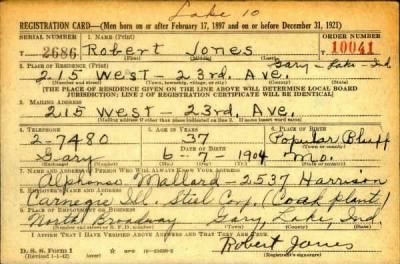 Lake 10
REGISTRATION CARD—(Men born on or after February 17, 1897 and on or before December 31, 1921)
SERIAL NUMBER 1. NAME (Print) ORDER NUMBER
2686 Robert Jones 10041
(First) (Middle) (Last)
2. PLACE OF RESIDENCE (Print) Gary-Lake-Ind
215 West-23rd. Ave.
(Number and street) (Town, township, village, or city) (County) (State)
[THE PLACE OF RESIDENCE GIVEN ON THE LINE ABOVE WILL DETERMINE LOCAL BOARD
JURISDICTION; LINE 2 OF REGISTRATION CERTIFICATE WILL BE IDENTICAL]
3. MAILING ADDRESS
215 West-23rd. Ave.
[Mailing address if other than place indicated on line 2. If same insert word same]
4. TELEPHONE 5. AGE IN YEARS 6. PLACE OF BIRTH
2-7480 37 Popular Bluff
DATE OF BIRTH
Gary 6-7-1904 Mo.
(Exchange) (Number) (Mo.) (Day) (Yr.) (State or country)
7. NAME AND ADDRESS OF PERSON WHO WILL ALWAYS KNOW YOUR ADDRESS
Alphonso Mallard-2537 Harrison
8. EMPLOYER'S NAME AND ADDRESS
Carnegie Ill. Steel Corp. (Coak plant)
9. PLACE OF EMPLOYMENT OR BUSINESS
North Broadway Gary, Lake, Ind.
(Number and street or R. F. D. number) (Town) (County) (State)
I AFFIRM THAT I HAVE VERIFIED ABOVE ANSWERS AND THAT THEY ARE TRUE.
D. S. S. Form 1
(Revised 1-1-42) (over) Robert Jones
(Registrant's signature)